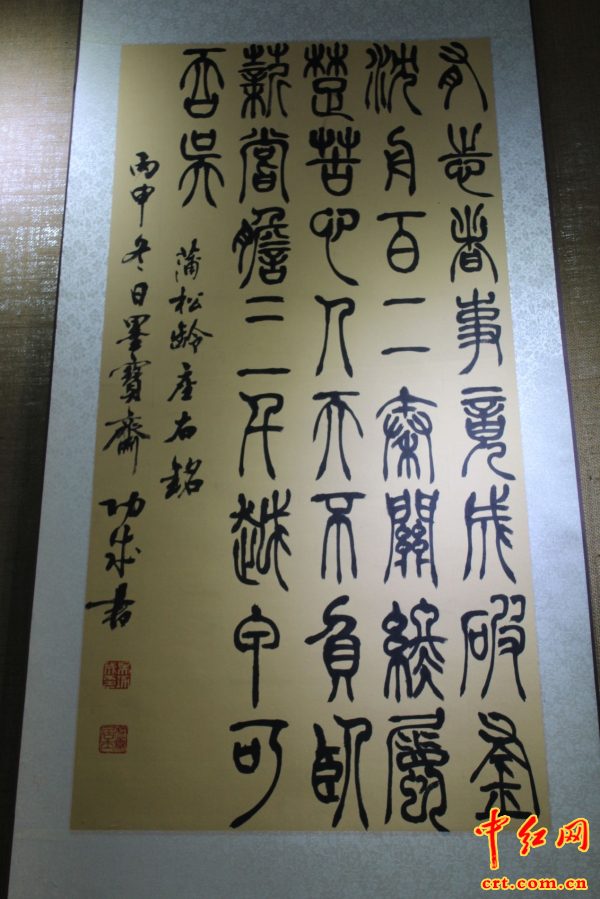 有志者事竟成破釜
沈舟百二秦關終屬
楚苦心人天不負臥
薪嘗膽三千越甲可
吞吳
蒲松齡座右銘
丙申冬日墨寶齋功成書
中红网
crt.com.cn